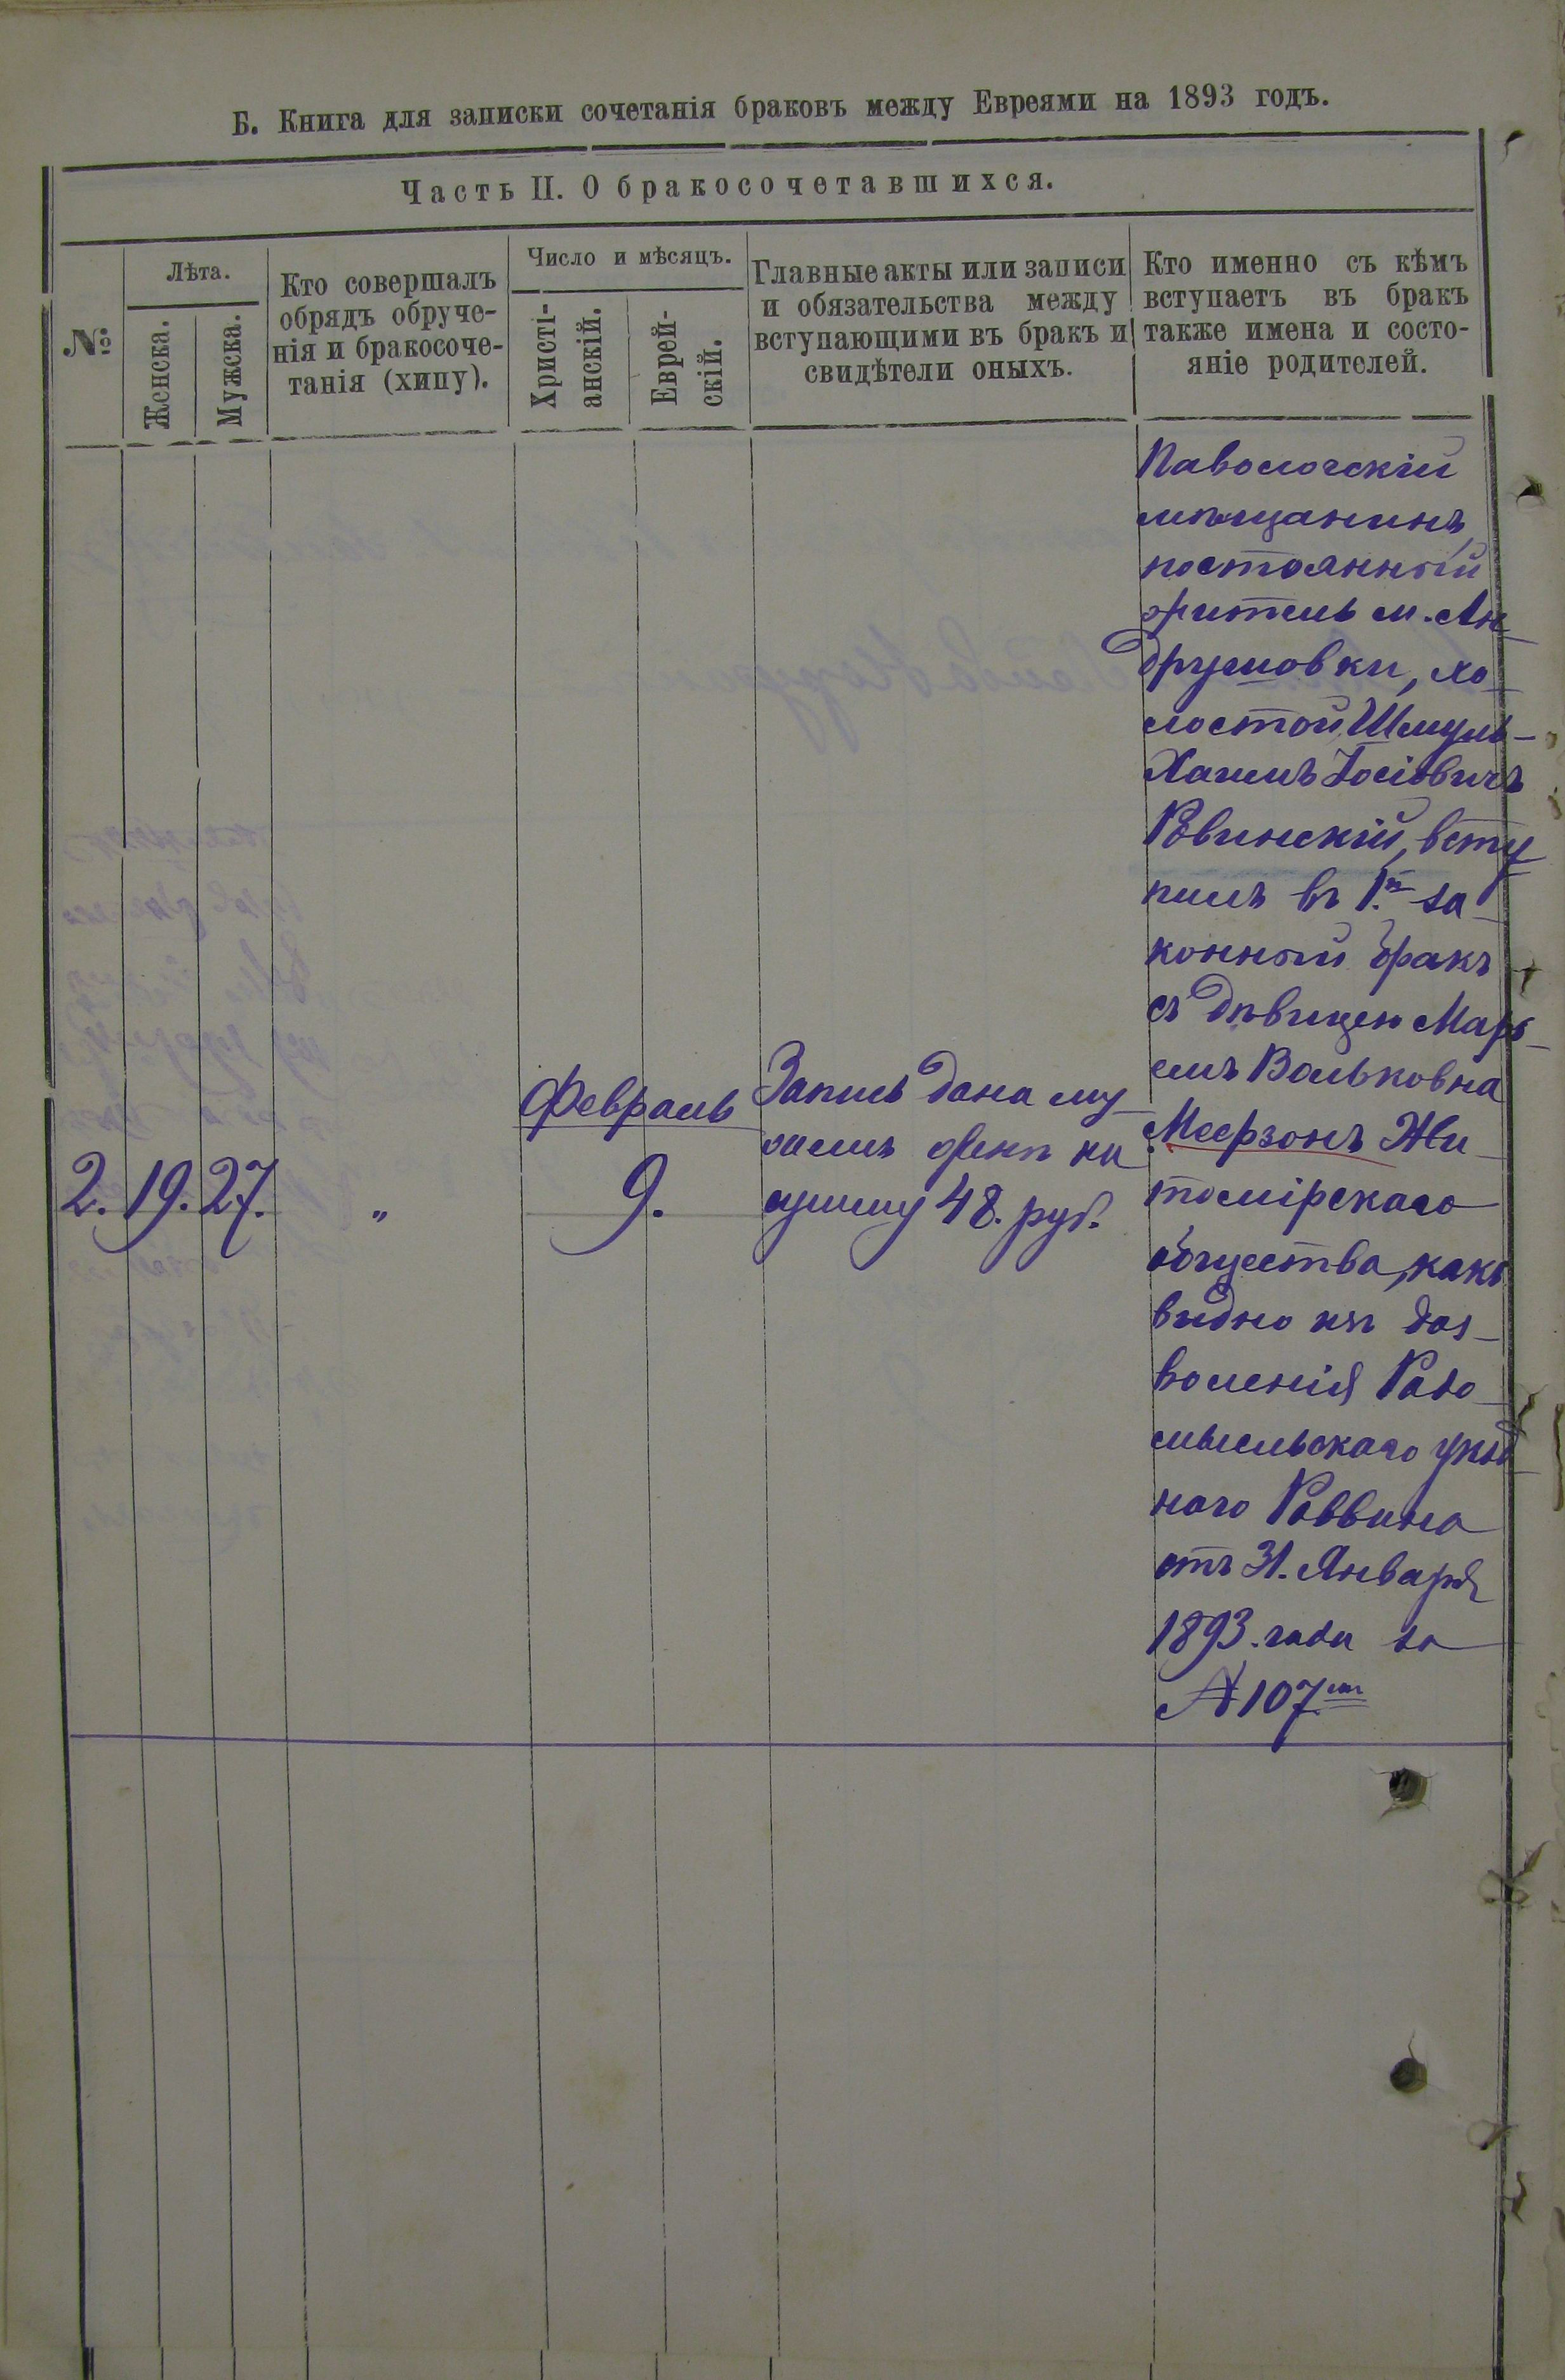 Б. Книга для записки сочетанія браковъ между Евреями на 1893 годъ.
Часть II. О бракосочетавшихся.
№
Лѣта.
Женска.
Мужска.
Кто совершалъ
обрядъ обруче-
нія и бракосоче-
танія (хипу).
Число и мѣсяцъ.
Христі-
анскій.
Еврей-
скій.
Главные акты или записи
и обязательства между
вступающими въ бракъ и
свидѣтели оныхъ.
Кто именно съ кѣмъ
вступаетъ въ бракъ
также имена и состо-
яніе родителей.
2. 19. 27.
„
Февраль
9.
Запись дана му-
жемъ женѣ на
сумму 48. руб.
Паволочскій
мѣщанинъ,
постоянный
житель м. Ан-
друшовки, хо-
лостой Шмуль-
Хаимъ Іосіовичъ
Рввинскій, всту-
пилъ въ 1.й за-
конный бракъ
съ дѣвицею Марь-
емъ Вольковна
Меерзонъ Жи-
томірскаго
общества, какъ
видно изъ доз-
воленія Радо-
мысльскаго уѣзд-
наго Раввина
отъ 31. Января
1893. года за
№ 107.мъ